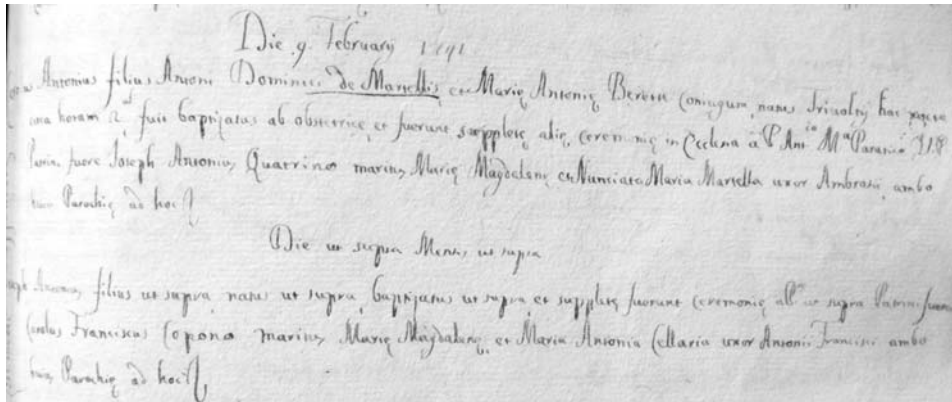 Die 9 February 1791
Antonius filius Antoni Dominici de Martellis et Marię Antonię Berette Coniugum, natus hac
horam 2 fuit baptizatus ab obstetrice et fuerunt suppletę alię ceremonię in Ecclesia a P. Ant. M.a
fuere Joseph Antonius Quatrino maritus Marię Magdalenę et Nunciata Maria Martella uxor Ambrosii ambo
Parochię ad hoc
Die ut supra Mensis ut supra
Antonius filius ut supra natus ut supra, baptizatus ut supra et suppletę fuerunt ceremonię ut supra Patrini fuerunt
Carolus Franciscus Copono maritus Marię Magdalenę et Maria Antonia Cellaria uxor Antonii Francisci ambo
huius Parochię ad hoc